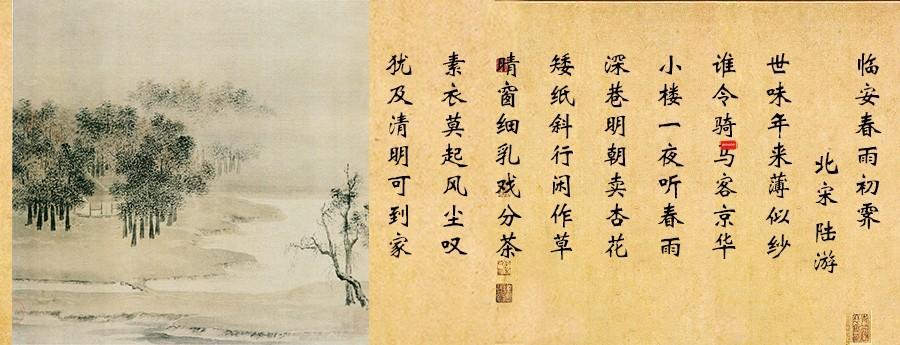 临安春雨初霁
北宋 陆游
世味年来薄似纱
谁令骑马客京华
小楼一夜听春雨
深巷明朝卖杏花
矮纸斜行闲作草
晴窗细乳戏分茶
素衣莫起风尘叹
犹及清明可到家